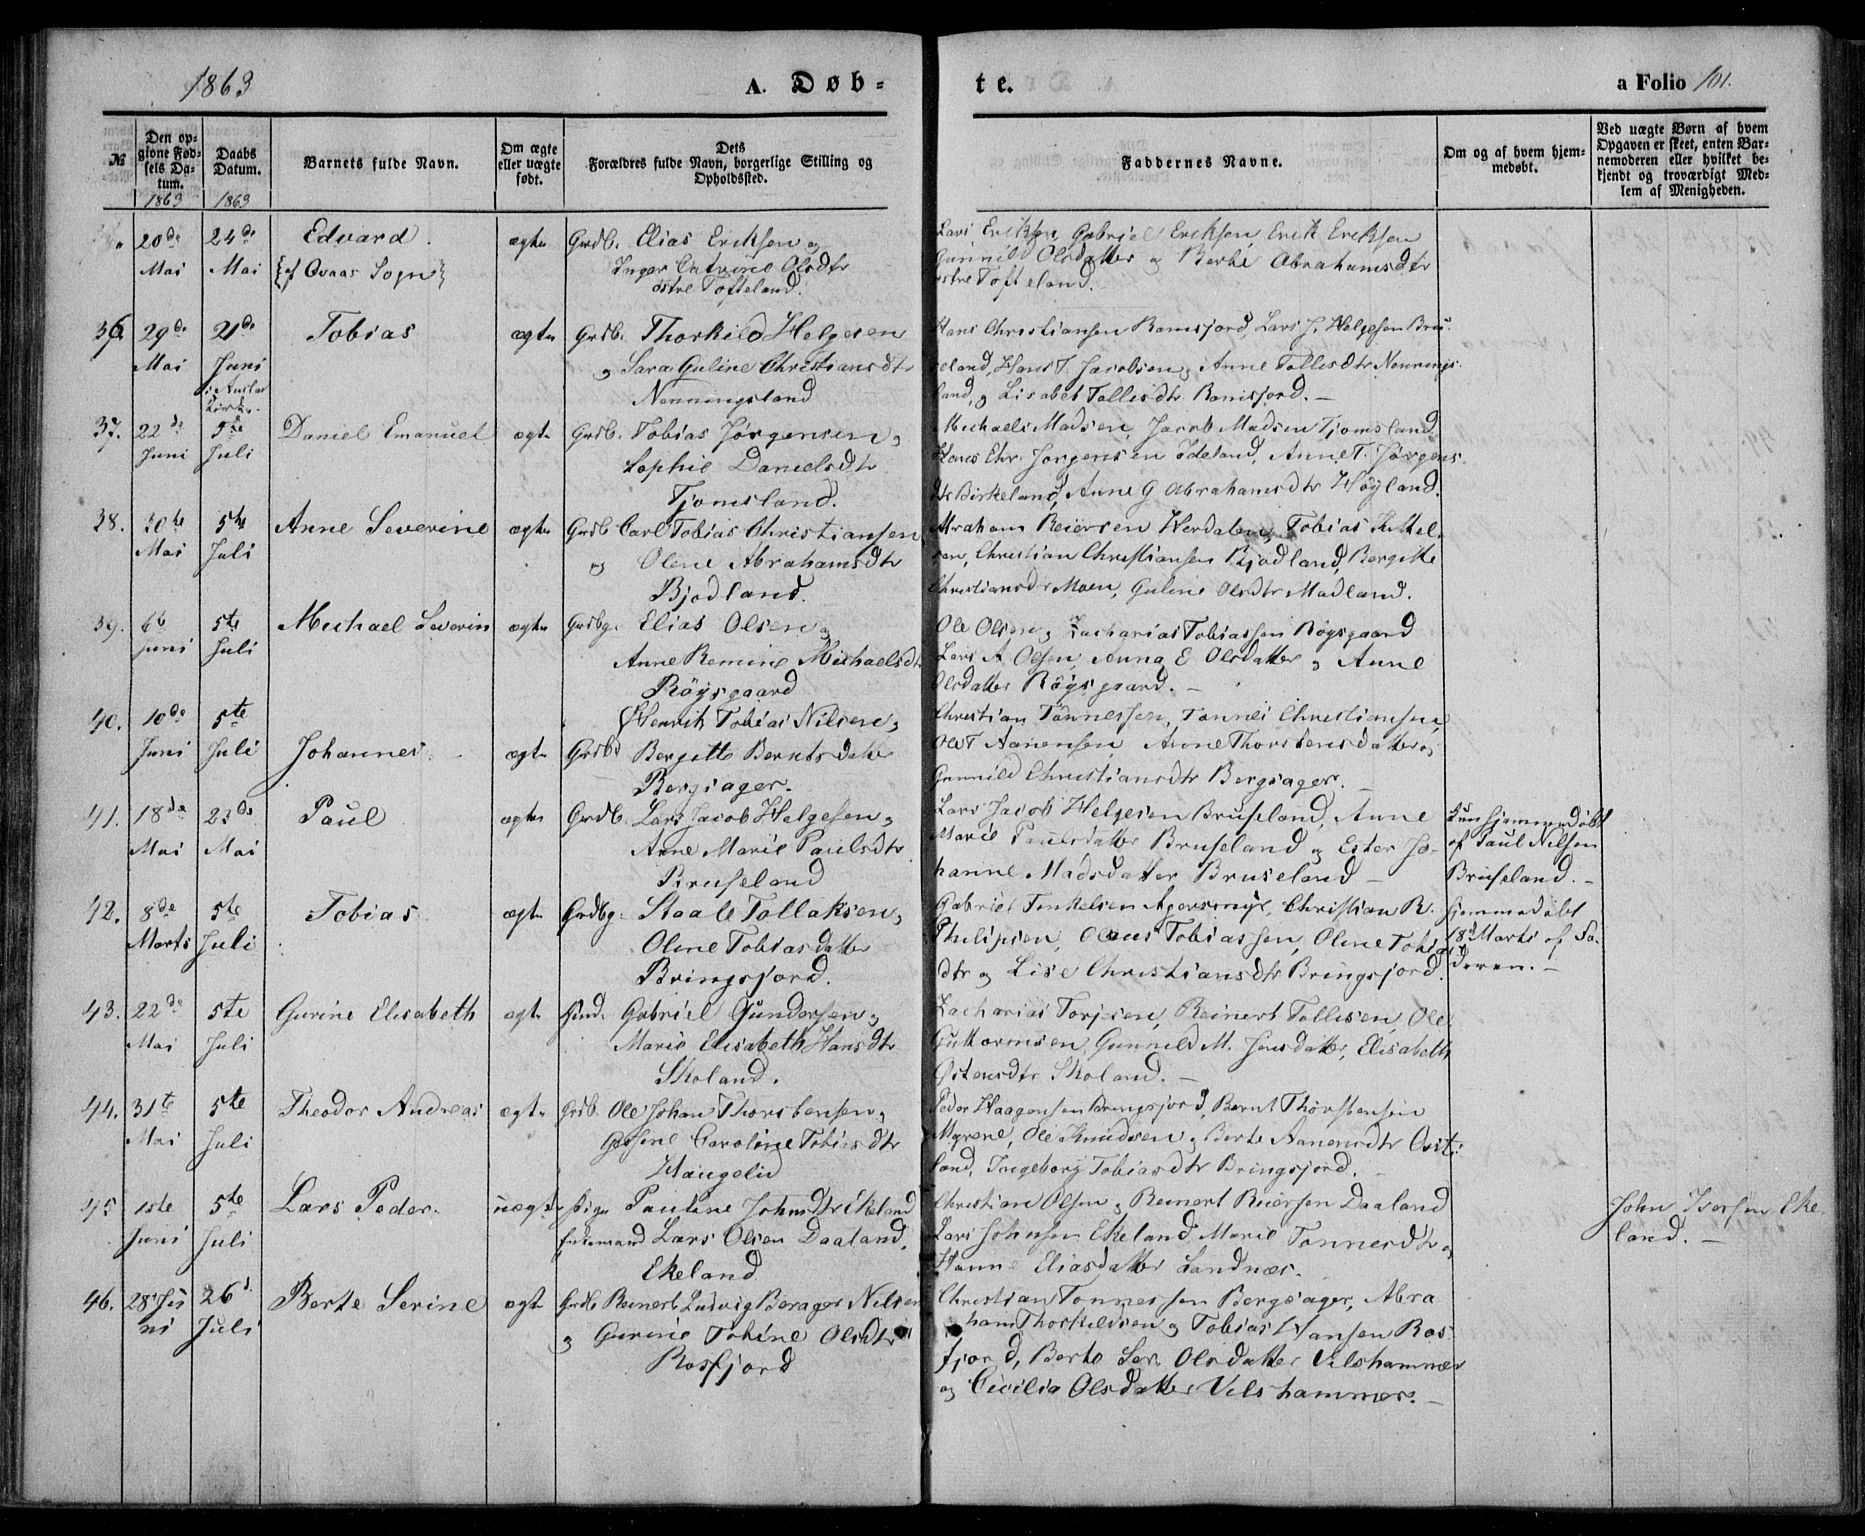 1863
A. Døb-
te.
a Folio 101.
№
Den op-
givne Fød-
sels Da-
tum.
1863
Daabs
Datum.
1863
Barnets fulde Navn.
Om ægte
eller uægte
født.
Dets
Forældres fulde Navn, borgerlige Stilling og
Opholdssted.
Faddernes Navne.
Om og af hvem hjem-
medøbt.
Ved uægte Børn af hvem
Opgaven er skeet, enten Bar-
nemoderen eller hvilket be-
kjendt og troværdigt Med-
lem af Menigheden.
20de Mai
24de Mai
Edvard.
{af Qvaas Sogn}
ægte
Grdb. Elias Eriksen og
Inger Catrine Olsdtr
østre Tofteland.
Lars Eriksen, Gabriel Eriksen, Erik Eriksen
Gunnild Olsdatter og Berte Abrahamsdtr
østre Tofteland.
36
29de Mai
21de Juni
Tobias
ægte
Grdb. Thorkild Helgesen
og Sara Guline Christiansdtr
Nenningsland
Hans Christiansen Ramsfjord, Lars J. Helgesen Bru-
seland, Hans T. Jacobsen, Anne Tollisdtr Nennings-
land, og Lisabet Tollisdtr Ramsfjord. —
37.
22de Juni
5te Juli
Daniel Emanuel
ægte
Grdb. Tobias Jørgensen og
Sophie Danielsdtr
Tjomsland.
Michael Madsen, Jacob Madsen Tjomsland
Hans Chr. Jørgensen Ødeland, Anne T. Jørgens-
dtr Birkeland, Anne G Abrahamsdtr Høyland.
38.
30te Mai
5te Juli
Anne Severine
ægte
Grdb Carl Tobias Christiansen
og Olene Abrahamsdtr
Bjodland.
Abraham Reiersen Herdalen, Tobias Kittel-
sen, Christian Christiansen Bjodland, Bergitte
Christiansdtr Moen, Guline Olsdtr Madland.
39.
6te Juni
5te Juli
Michael Severin
ægte
Grdbg. Elias Olsen og
Anne Remine Michaelsdtr
Røysgaard
Ole Olsen og Zacharias Tobiassen Røysgaard
Lars A Olsen, Anna E Olsdatter og Anne
Olsdatter Røysgaard. —
40.
10de Juni
5te Juli
Johannes.
ægte
Grdb
Henrik Tobias Nilsen og
Bergitte Berntsdatter
Bergsager.
Christian Tønnessen, Tønnes Christiansen,
Ole T Aanensen, Anne Thorstensdatter og
Gunnild Christiansdtr Bergsager. —
41.
18de Mai
23de Mai
Paul
ægte
Grdb. Lars Jacob Helgesen og
Anne Marie Paulsdtr
Bruseland
Lars Jacob Helgesen Bruseland, Anne
Marie Paulsdatter Bruseland og Ester Jo-
hanne Madsdatter Bruseland —
Kun hjemmedøbt
af Paul Nilsen
Bruseland. —
42.
8de Marts
5te Juli
Tobias.
ægte
Grdbg. Staale Tollaksen og
Olene Tobiasdatter
Bringsjord.
Gabriel Tenkelsen Agersmyr, Christian R.
Philipsen, Olaus Tobiassen, Olene Tobias-
dtr og Lise Christiansdtr Bringsjord.
hjemmedøbt
18d Marts af Fa-
deren. —
43.
22de Mai
5te Juli
Gurine Elisabeth
ægte
Ind. Gabriel Gundersen og
Marie Elisabeth Hansdtr
Skoland.
Zacharias Torjesen, Reinert Tollisen, Ole
Guttormsen, Gunnild M. Jensdatter, Elisabeth
Østensdtr Skoland. —
44.
31te Mai
5te Juli
Theodor Andreas
ægte
Grdb. Ole Johan Thorstensen og
Gesine Caroline Tobiasdtr
Haugelid
Peder Haagensen Bringsjord, Bernt Thorstensen
Myrene, Ole Knudsen, Berte Aanensdtr Øst-
land, Ingeborg Tobiasdtr Bringsjord.
45
1ste Juni
5te Juli
Lars Peder.
uægte
Pige Pauline Johnsdtr Ekeland
Enkemand Lars Olsen Daaland,
Ekeland
Christian Olsen og Reinert Reiersen Daaland
Lars Johnsen Ekeland, Marie Tønnesdtr og
Hanne Eliasdatter Landnæs.
John Iversen Eke-
land. —
46.
28 Juni
26d Juli
Berte Serine
ægte
Grdb Reinert Ludvig Berager Nilsen
og Gurine Tobine Olsdtr
Rosfjord
Christian Tønnessen Bergsager, Abra
ham Thorkildsen og Tobias Hansen Ros-
fjord, Berte Ser. Olsdatter Velshammer
og Cecilia Olsdatter Velshammer. —